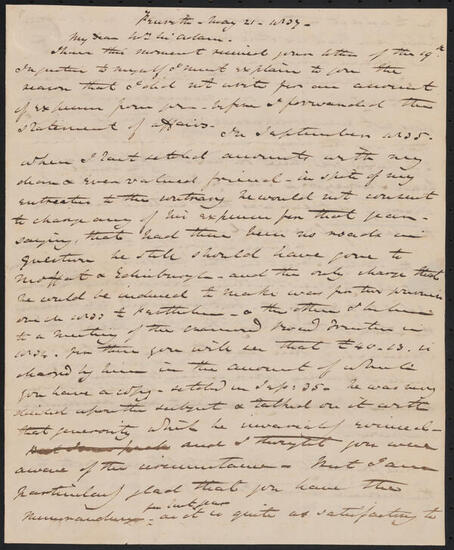 May 21 - 1837 -
My dear Mr McAdam.
I have this moment received your letter of the 19th
In justice to myself, I must explain to you the
reason that I did not write for an amount
of expenses from you - before I forwarded the
Statement of affairs. In September 1835 -
When I last settled accounts with my
dear & ever valued friend - in spite of my
entreaties to the contrary he would not consent
to charge any of his expenses for that year -
saying, that had there been no roads in
question he still should have gone to
Moffat & Edinburgh - and the only charge that
he could be induced to make was for two journeys
one in 1833 to - & the other I believe
to a Meeting of the Road Trustees in
1834. for these you will see that £40-13. is
charged by him in the amount of which
you have a copy - settled in Sep: 35 - he was very
decided upon the subject & talked on it with
that generosity which he invariably evinced -
and I thought you were
aware of the circumstance - But I am
particularly glad that you have the
Memorandums - as it is quite as satisfactory to